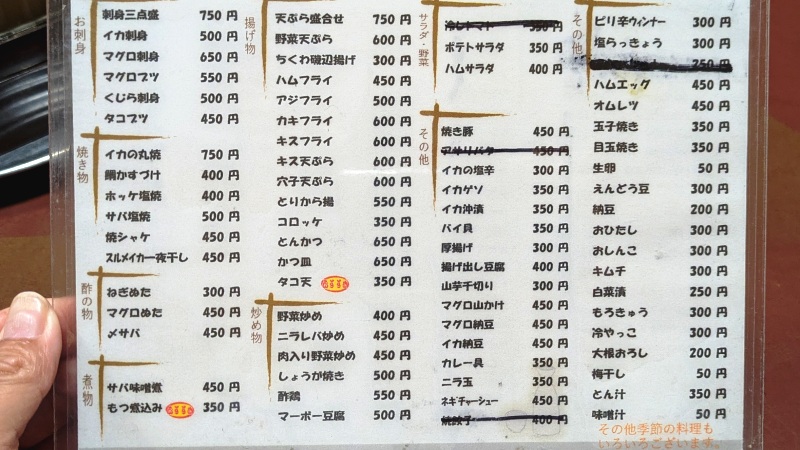 お刺身
刺身三点盛 750円
イカ刺身 500円
マグロ刺身 650円
マグロブツ 550円
くじら刺身 500円
タコブツ 450円
焼き物
イカの丸焼 750円
鯛かすづけ 400円
ホッケ塩焼 400円
サバ塩焼 500円
焼シャケ 450円
スルメイカ一夜干し 450円
酢の物
ねぎぬた 300円
マグロぬた 450円
〆サバ 450円
煮物
サバ味噌煮 450円
もつ煮込み 350円
揚げ物
天ぷら盛合せ 750円
野菜天ぷら 600円
ちくわ磯辺揚げ 300円
ハムフライ 450円
アジフライ 500円
カキフライ 600円
キスフライ 600円
キス天ぷら 600円
穴子天ぷら 600円
とりから揚 550円
コロッケ 350円
とんかつ 650円
かつ皿 650円
タコ天 350円
炒め物
野菜炒め 400円
ニラレバ炒め 450円
肉入り野菜炒め 450円
しょうが焼き 500円
酢鶏 550円
マーボー豆腐 500円
サラダ・野菜
冷しトマト 350円
ポテトサラダ 350円
ハムサラダ 400円
その他
焼き豚 450円
アサリバター 450円
イカの塩辛 300円
イカゲソ 350円
イカ沖漬 350円
バイ貝 350円
厚揚げ 300円
揚げ出し豆腐 400円
山芋千切り 300円
マグロ山かけ 450円
マグロ納豆 450円
イカ納豆 450円
カレー具 350円
ニラ玉 350円
ネギチャーシュー 450円
焼餃子 400円
その他
ピリ辛ウィンナー 300円
塩らっきょう 300円
250円
ハムエッグ 450円
オムレツ 450円
玉子焼き 350円
目玉焼き 350円
生卵 50円
えんどう豆 300円
納豆 200円
おひたし 300円
おしんこ 300円
キムチ 300円
白菜漬 250円
もろきゅう 300円
冷やっこ 300円
大根おろし 200円
梅干し 50円
とん汁 350円
味噌汁 50円
その他季節の料理も
いろいろございます。